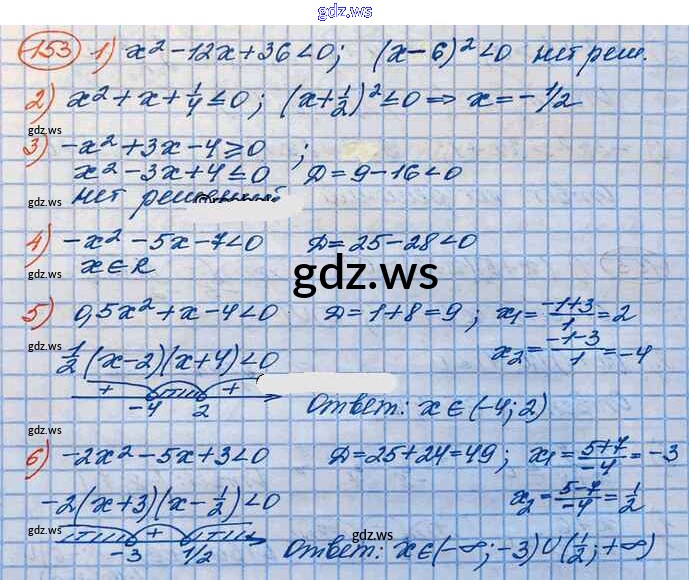 gdz.ws
153 1) x² - 12x + 36 < 0; (x - 6)² < 0 нет реш.
2) x² + x + 1/4 ≤ 0; (x + 1/2)² ≤ 0 ⇒ x = -1/2
gdz.ws
3) -x² + 3x - 4 ≥ 0 ;
x² - 3x + 4 ≤ 0 D = 9 - 16 < 0
gdz.ws
нет решений
4) -x² - 5x - 7 < 0 D = 25 - 28 < 0
gdz.ws
x ∈ R
gdz.ws
5) 0,5x² + x - 4 < 0 D = 1 + 8 = 9 ; x₁ = (-1+3)/1 = 2
gdz.ws
1/2 (x - 2)(x + 4) < 0 x₂ = (-1-3)/1 = -4
+ +
-4 2 Ответ: x ∈ (-4; 2)
gdz.ws
6) -2x² - 5x + 3 < 0 D = 25 + 24 = 49 ; x₁ = (5+7)/-4 = -3
-2(x + 3)(x - 1/2) < 0 x₂ = (5-7)/-4 = 1/2
gdz.ws
+
-3 1/2 Ответ: x ∈ (-∞; -3) ∪ (1/2; +∞)